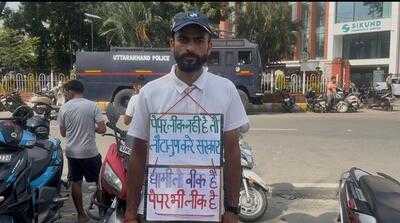 SIKUND
UTTARAKHAND POLICE
पेपर लीक नहीं है तो
नौटंकी करे सरकार
धामी तो वीक है
पेपर भी लीक है